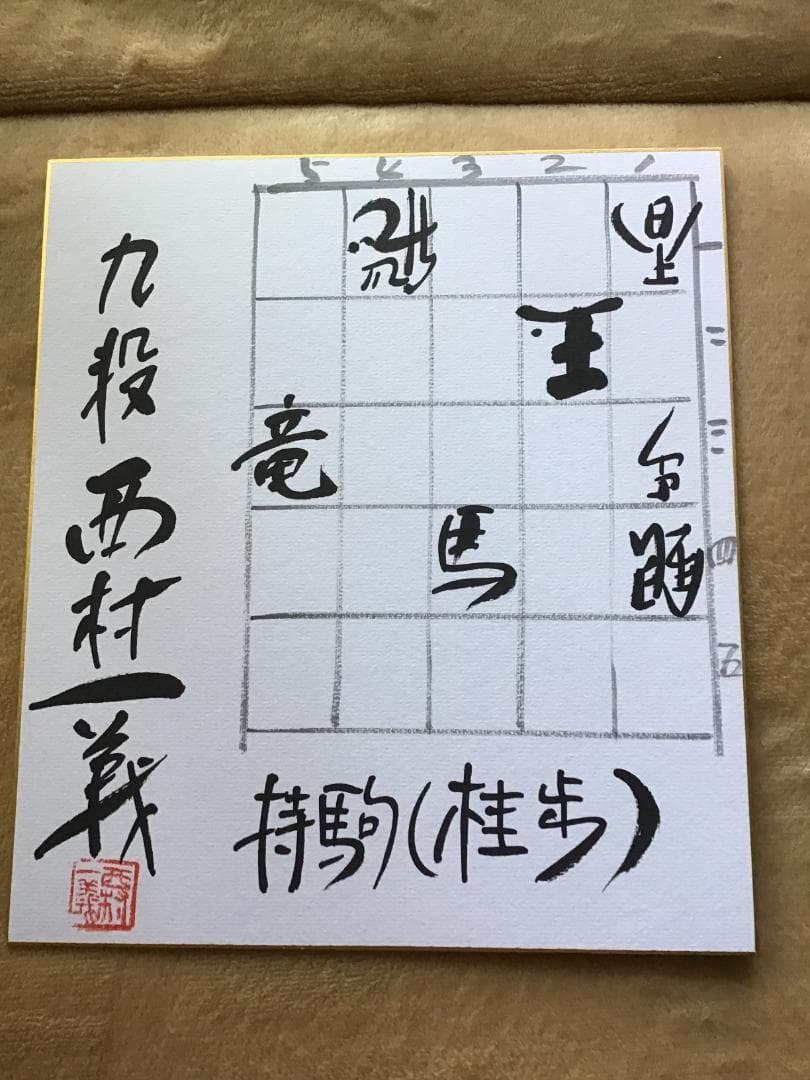 5 4 3 2 1
飛 香 一
玉 二
竜 三
馬 四
五
持駒(桂歩)
九段 西村一義
西村一義